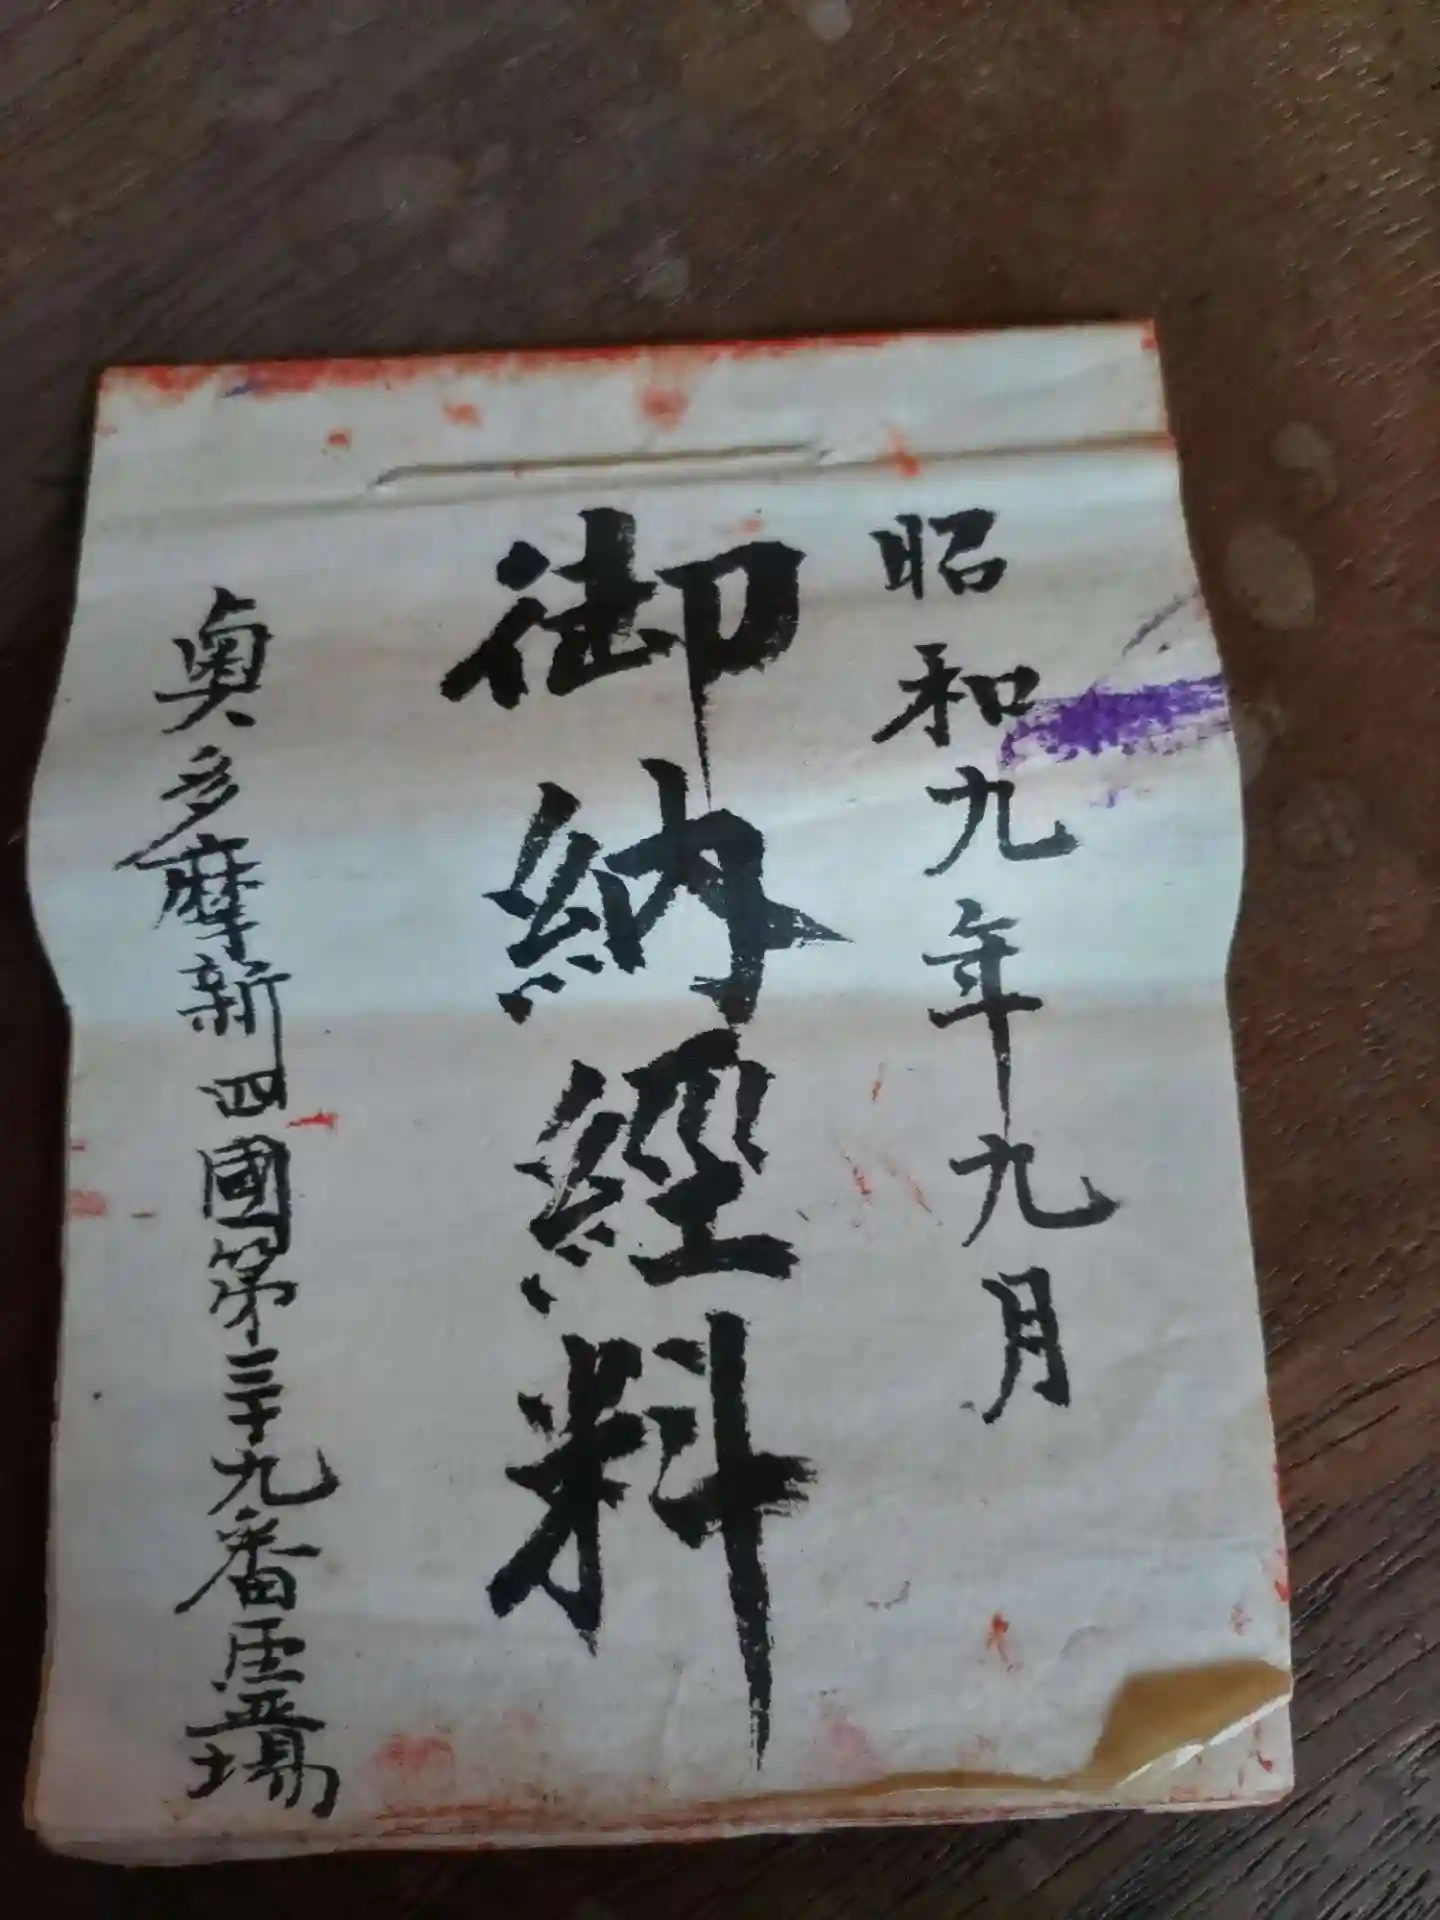 昭和九年九月
御納經料
奥多摩新四國第三十九番霊場